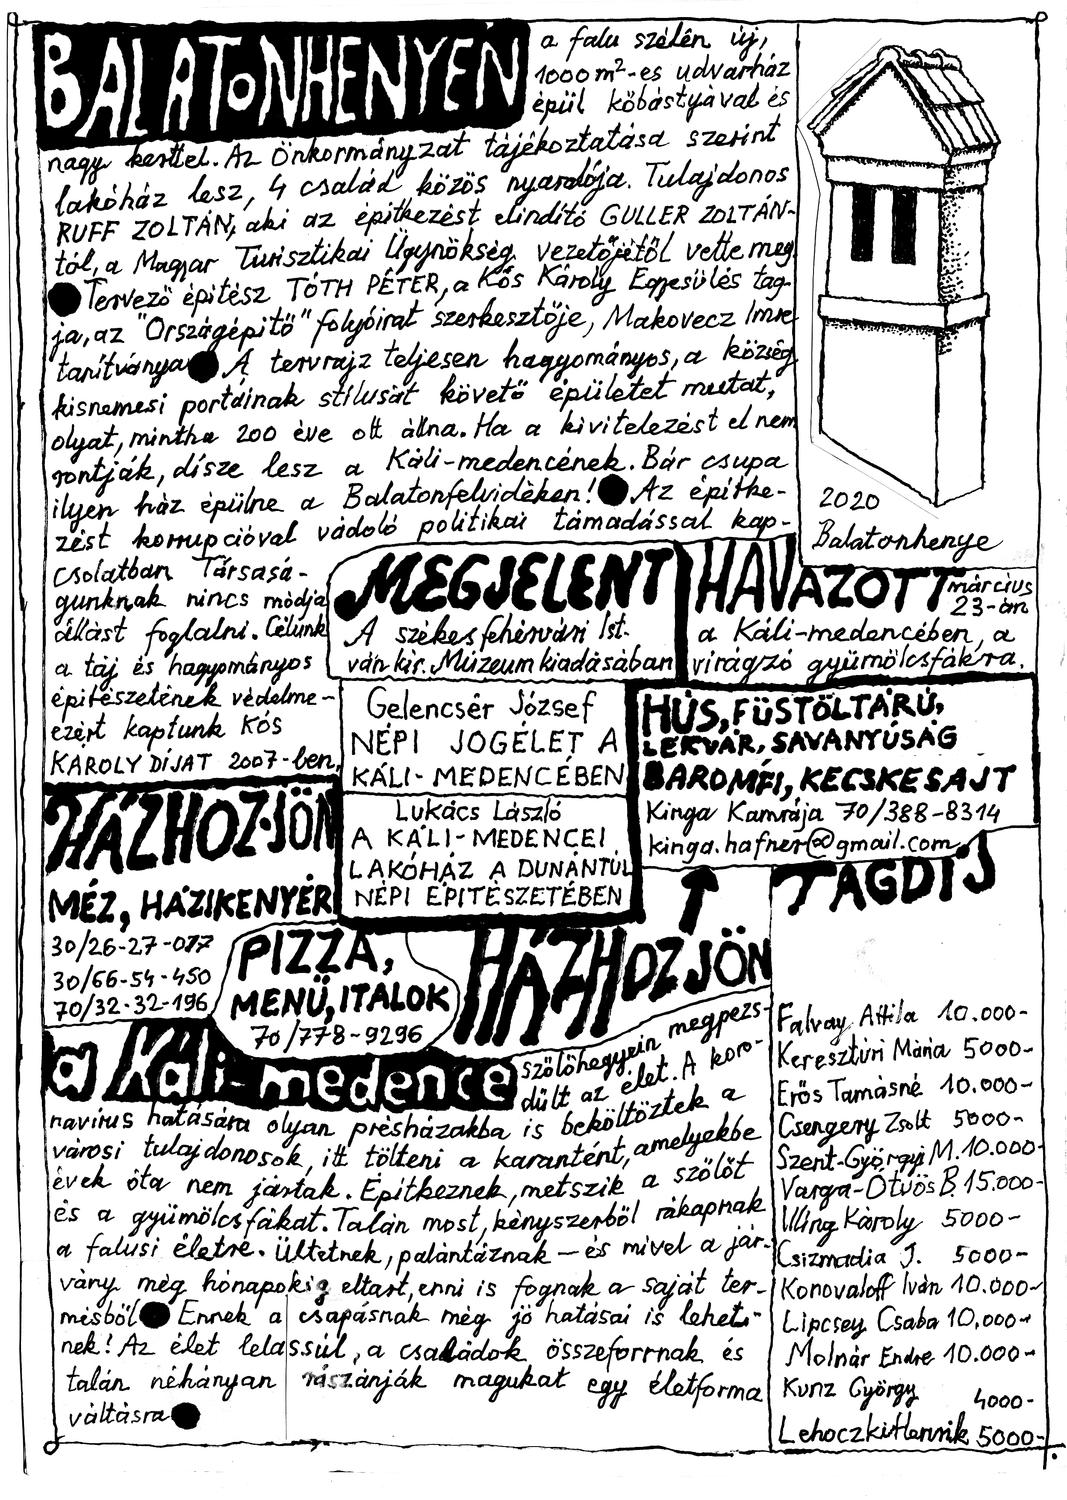 BALATONHENYEN
a falu szélén új,
1000 m²-es udvarház
épül kőbástyával és
nagy kerttel. Az Önkormányzat tájékoztatása szerint
lakóház lesz, 4 család közös nyaralója. Tulajdonos
RUFF ZOLTÁN, aki az építkezést elindító GULLER ZOLTÁN-
tól, a Magyar Turisztikai Ügynökség vezetőjétől vette meg.
Tervező építész TÓTH PÉTER, a Kós Károly Egyesülés tag-
ja, az "Országépítő" folyóirat szerkesztője, Makovecz Imre
tanítványa A tervrajz teljesen hagyományos, a község
kisnemesi portáinak stílusát követő épületet mutat,
olyat, mintha 200 éve ott állna. Ha a kivitelezést el nem
rontják, dísze lesz a Káli-medencének. Bár csupa
ilyen ház épülne a Balatonfelvidéken! Az építke-
zést korrupcióval vádoló politikai támadással kap-
csolatban Társasá-
gunknak nincs módja
állást foglalni. Célunk
a táj és hagyományos
építészetének védelme-
ezért kaptunk Kós
KÁROLY DÍJAT 2007-ben.
2020
Balatonhenye
MEGJELENT
A székesfehérvári Ist-
ván kir. Múzeum kiadásában
Gelencsér József
NÉPI JOGÉLET A
KÁLI-MEDENCÉBEN
Lukács László
A KÁLI-MEDENCEI
LAKÓHÁZ A DUNÁNTÚL
NÉPI ÉPÍTÉSZETÉBEN
HAVAZOTT március
23-án
a Káli-medencében, a
virágzó gyümölcsfákra.
HÚS, FÜSTÖLTÁRÚ,
LEKVÁR, SAVANYÚSÁG
BAROMFI, KECSKESAJT
Kinga Kamrája 70/388-8314
kinga.hafner@gmail.com
HÁZHOZ JÖN
HÁZHOZ JÖN
MÉZ, HÁZIKENYÉR
30/26-27-077
30/66-54-450
70/32-32-196
PIZZA,
MENÜ, ITALOK
70/778-9296
a Káli-medence
szőlőhegyein megpezs-
dült az élet. A koro-
navírus hatására olyan présházakba is beköltöztek a
városi tulajdonosok, itt tölteni a karantént, amelyekbe
évek óta nem jártak. Építkeznek, metszik a szőlőt
és a gyümölcsfákat. Talán most, kényszerből rákapnak
a falusi életre. Ültetnek, palántáznak – és mivel a jár-
vány még hónapokig eltart, enni is fognak a saját ter-
mésből Ennek a csapásnak még jó hatásai is lehet-
nek! Az élet lelassúl, a családok összeforrnak és
talán néhányan rászánják magukat egy életforma
váltásra
TAGDÍJ
Falvay Attila 10.000-
Keresztúri Mária 5000-
Erős Tamásné 10.000-
Csengery Zsolt 5000-
Szent-Györgyi M. 10.000-
Varga-Ötvös B. 15.000-
Illing Károly 5000-
Csizmadia J. 5000-
Konovaloff Iván 10.000-
Lipcsey Csaba 10.000-
Molnár Endre 10.000-
Kunz György 4000-
Lehoczki Henrik 5000-